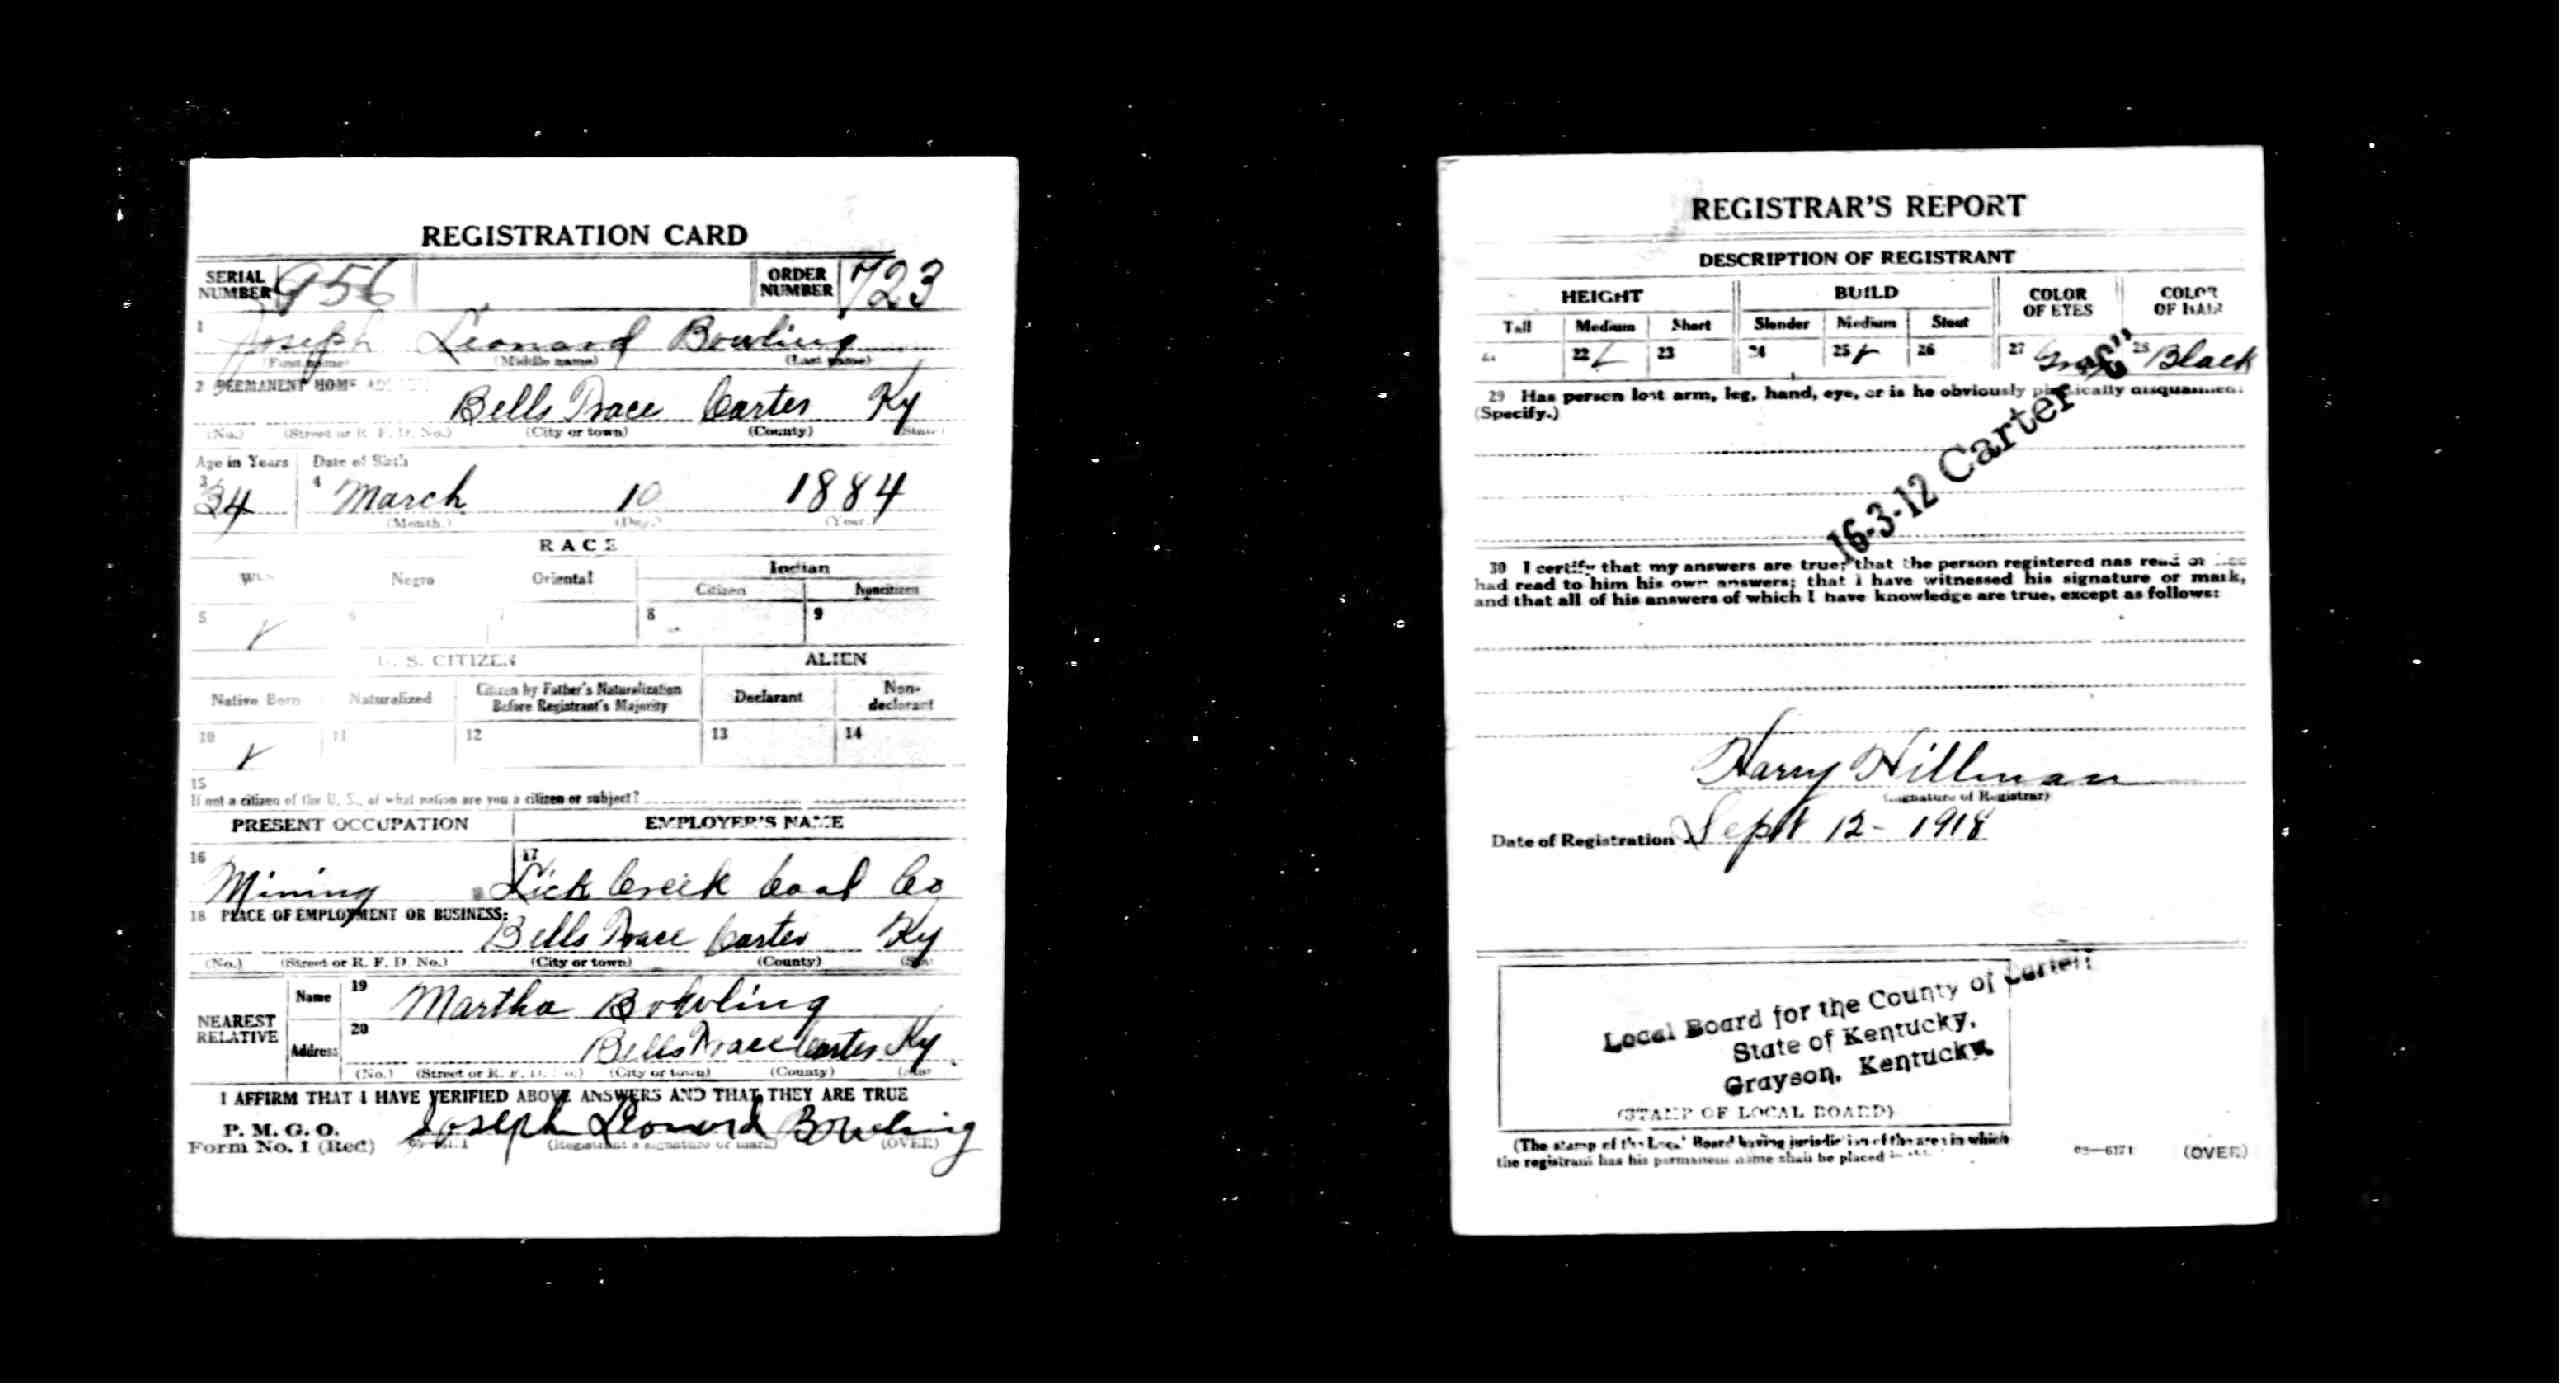 REGISTRATION CARD
SERIAL NUMBER 956 ORDER NUMBER 723
1 Joseph Leonard Bowling
(First name) (Middle name) (Last name)
2 PERMANENT HOME
Bells Trace Carter Ky
(No.) (Street or R. F. D. No.) (City or town) (County) (State)
Age in Years Date of Birth
3 34 4 March 10 1884
(Month.) (Day.) (Year.)
RACE
Negro Oriental Indian
Citizen Noncitizen
5 6 7 8 9
U. S. CITIZEN ALIEN
Native Born Naturalized Citizen by Father's Naturalization Before Registrant's Majority Declarant Non-declarant
10 11 12 13 14
15
If not a citizen of the U. S., of what nation are you a citizen or subject?
PRESENT OCCUPATION EMPLOYER'S NAME
16 Mining 17 Lick Creek Coal Co
18 PLACE OF EMPLOYMENT OR BUSINESS:
Bells Trace Carter Ky
(No.) (Street or R. F. D. No.) (City or town) (County)
NEAREST RELATIVE Name 19 Martha Bowling
Address 20 Bells Trace Carter Ky
(No.) (Street or R. F. D. No.) (City or town) (County)
I AFFIRM THAT I HAVE VERIFIED ABOVE ANSWERS AND THAT THEY ARE TRUE
P. M. G. O.
Form No. 1 (Red) Joseph Leonard Bowling
(Registrant's signature or mark) (OVER)
REGISTRAR'S REPORT
DESCRIPTION OF REGISTRANT
HEIGHT BUILD COLOR OF EYES COLOR OF HAIR
Tall Medium Short Slender Medium Stout
22 23 24 25 26 27 28 Black
29 Has person lost arm, leg, hand, eye, or is he obviously physically disqualified?
(Specify.)
16-3-12 Carter "C"
30 I certify that my answers are true; that the person registered has read or has
had read to him his own answers; that I have witnessed his signature or mark,
and that all of his answers of which I have knowledge are true, except as follows:
Harry Hillman
(Signature of Registrar)
Date of Registration Sept 12 - 1918
Local Board for the County of Carter
State of Kentucky,
Grayson, Kentucky.
(STAMP OF LOCAL BOARD)
(The stamp of the Local Board having jurisdiction of the area in which
the registrant has his permanent home shall be placed in
03—6171 (OVER)